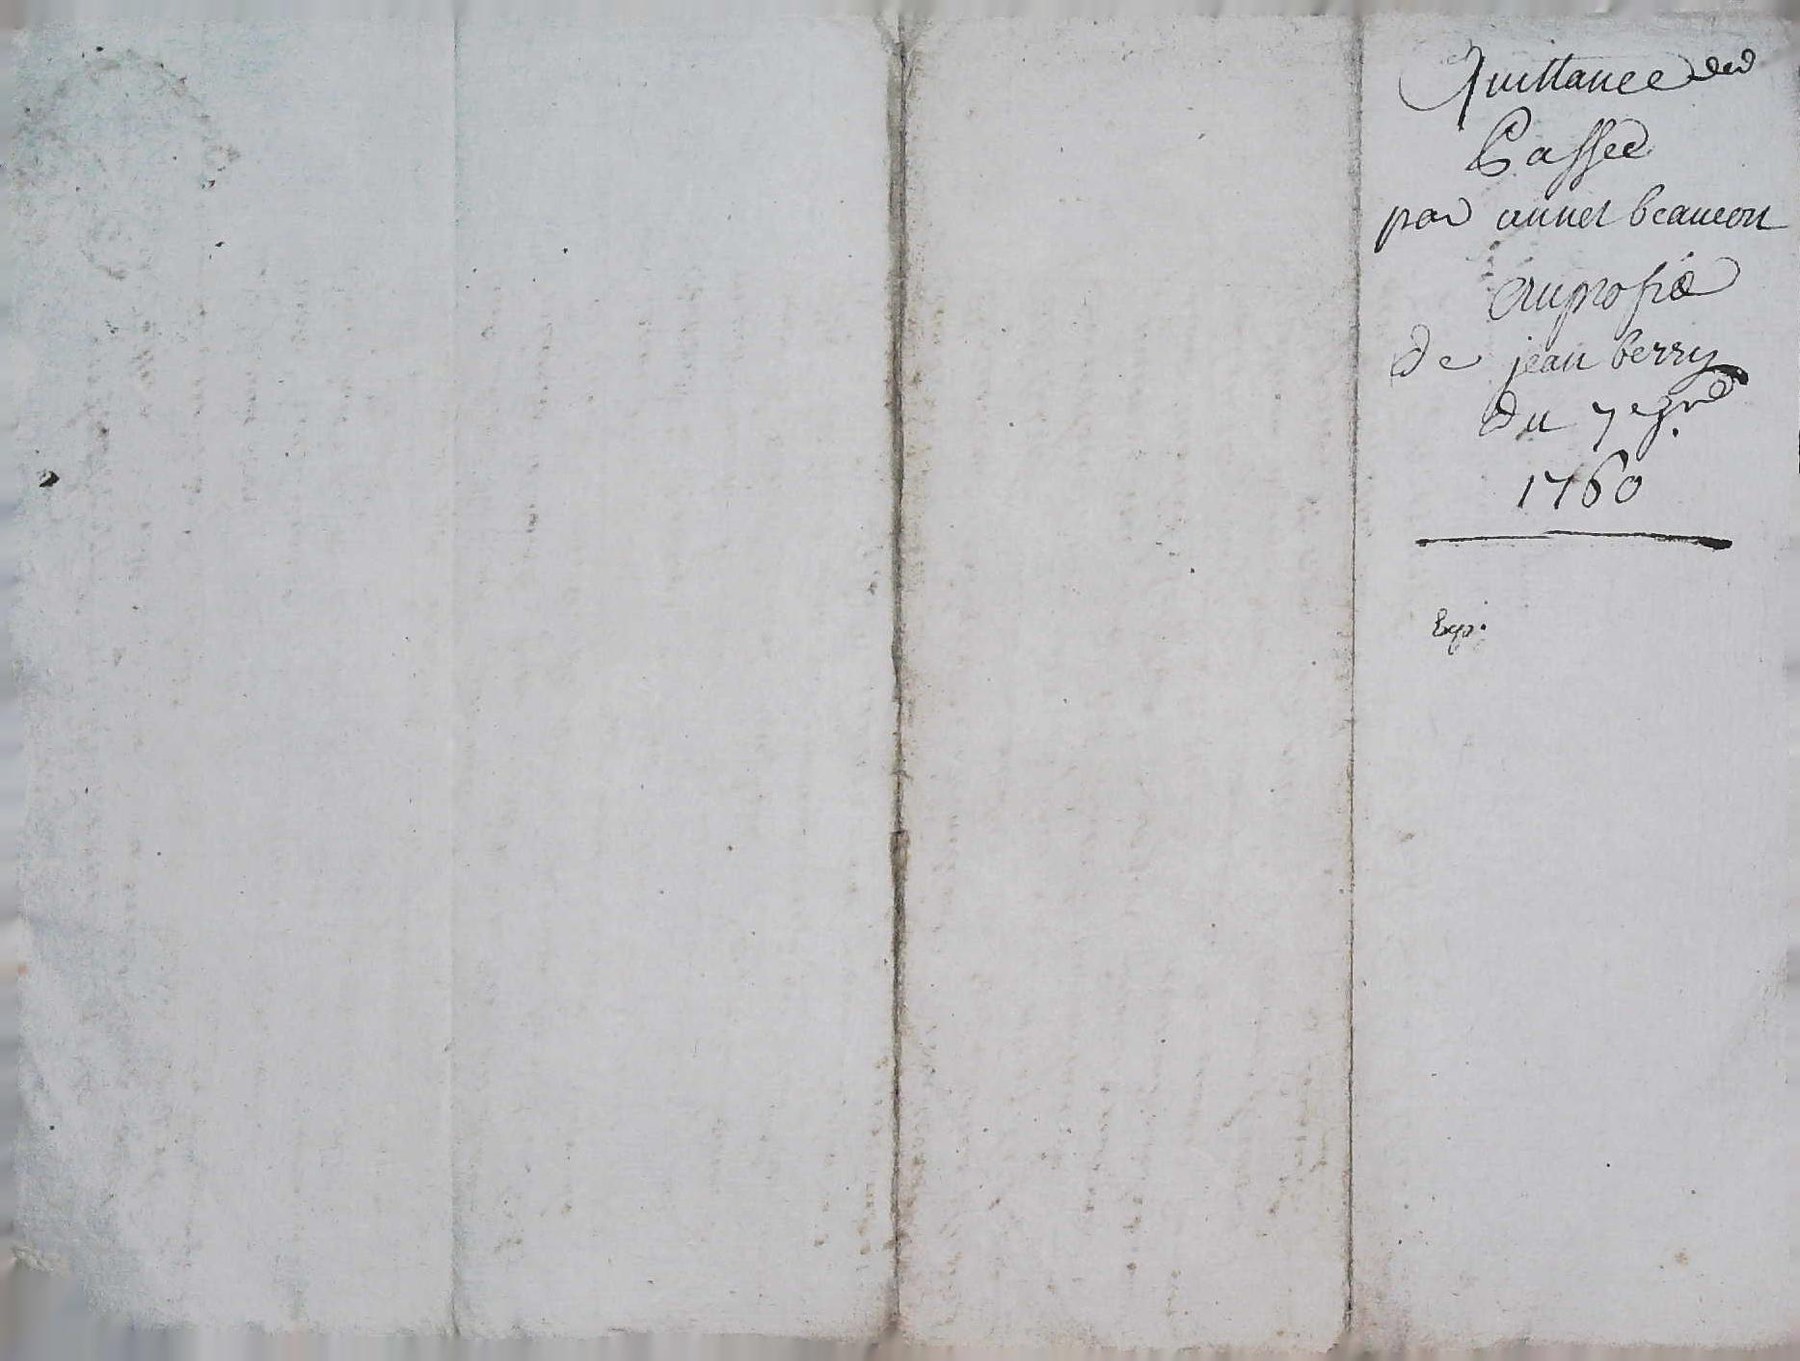 Quittance
Passée
par annet beaucon
Auprofit
de jean berry
du 7
1760
Exp.